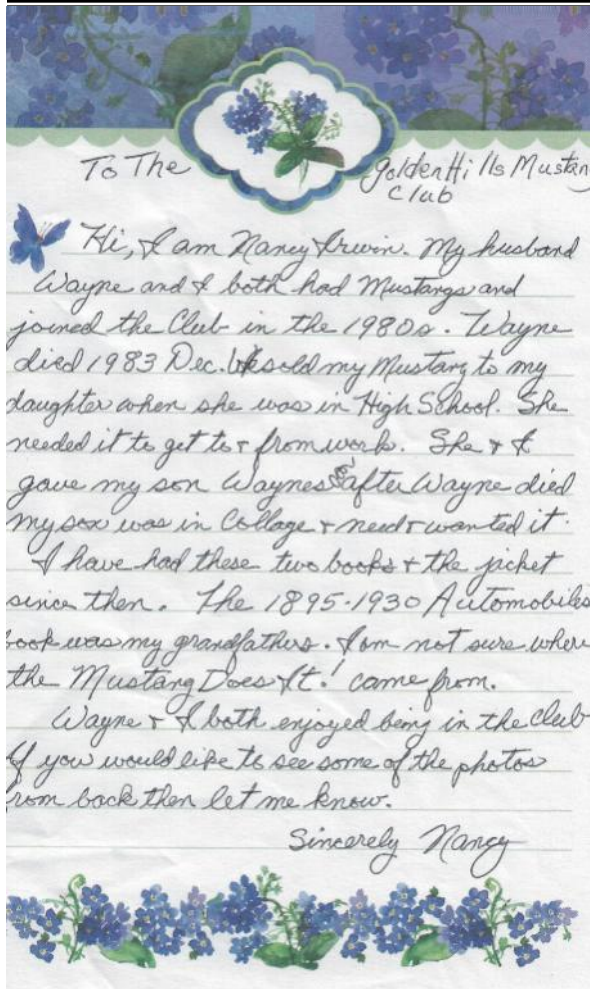 To The Golden Hills Mustang
Club
Hi, I am Nancy Irwin. My husband
Wayne and I both had Mustangs and
joined the Club in the 1980s. Wayne
died 1983 Dec. We sold my Mustang to my
daughter when she was in High School. She
needed it to get to & from work. She & I
gave my son Waynes after Wayne died
my son was in Collage & need & wanted it.
I have had these two books & the jacket
since then. The 1895-1930 Automobiles
book was my grandfathers. I am not sure where
the Mustang Does It! came from.
Wayne & I both enjoyed being in the club
If you would like to see some of the photos
from back then let me know.
Sincerely Nancy